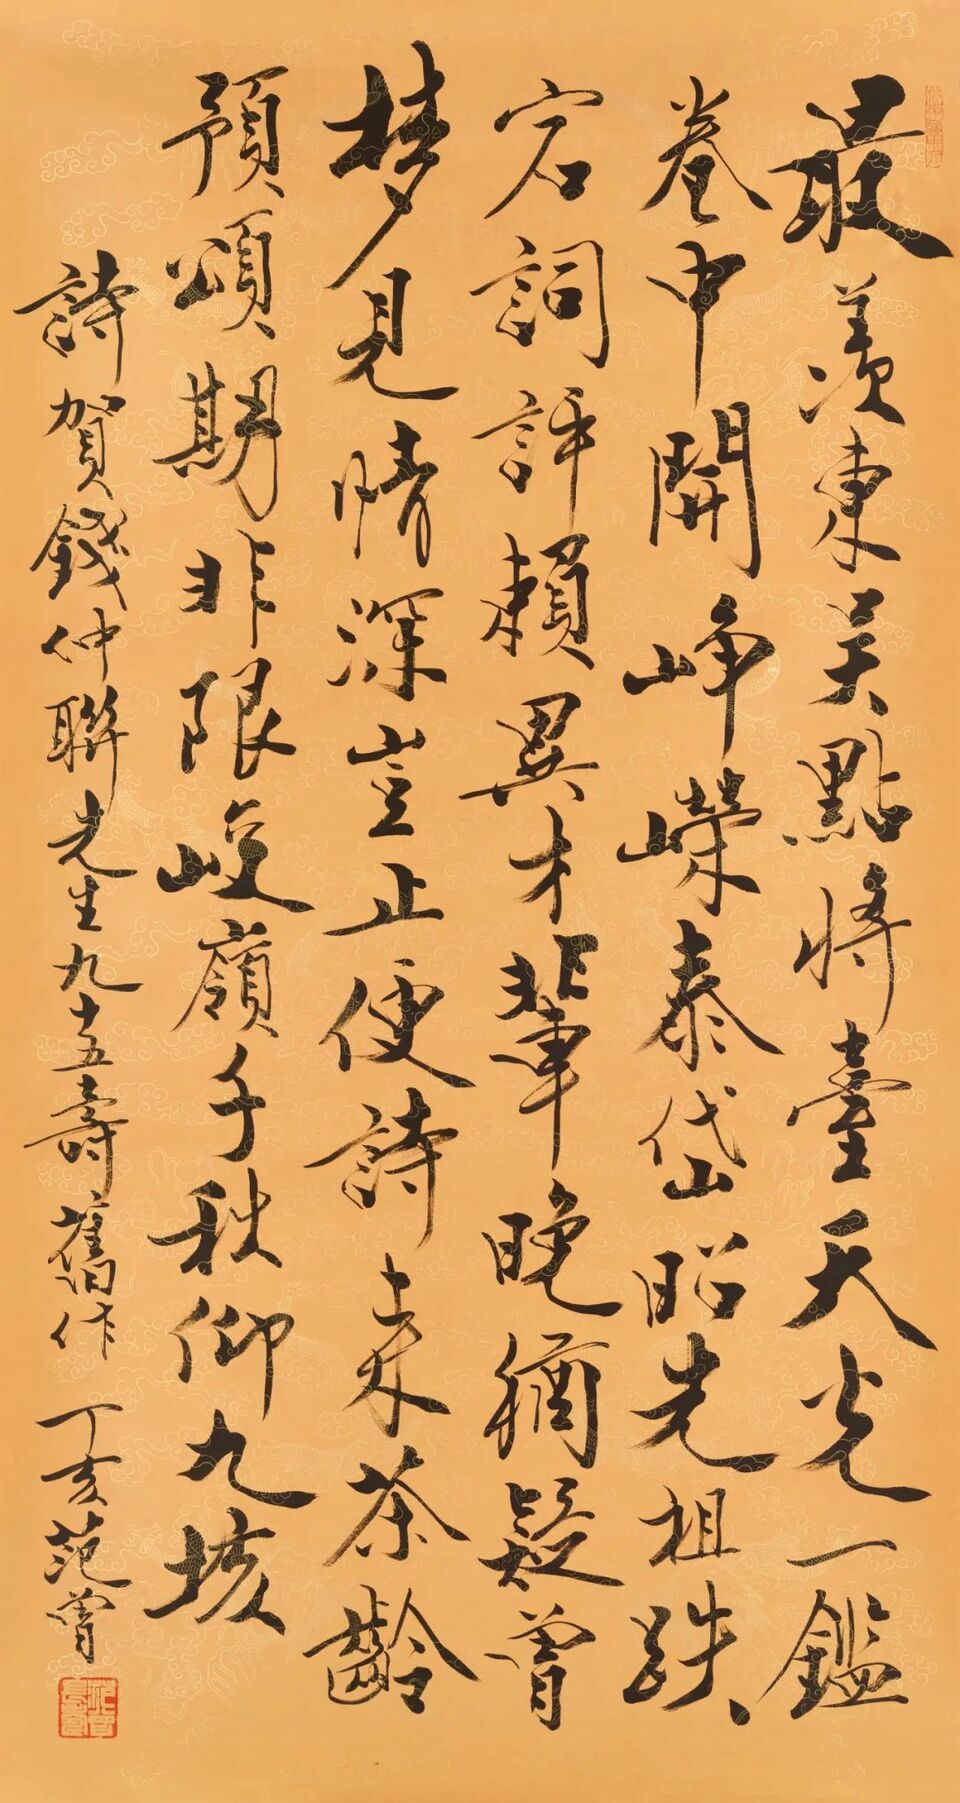 最羨東吴點將臺天光一鑑
卷中開崢嶸泰岱昭先祖跌
宕詞評賴異才輩晚猶疑曾
梦見情深豈止便詩来茶龄
預頌期非限峻嶺千秋仰九垓
詩賀錢仲聯先生九十五壽舊作 丁亥范曾